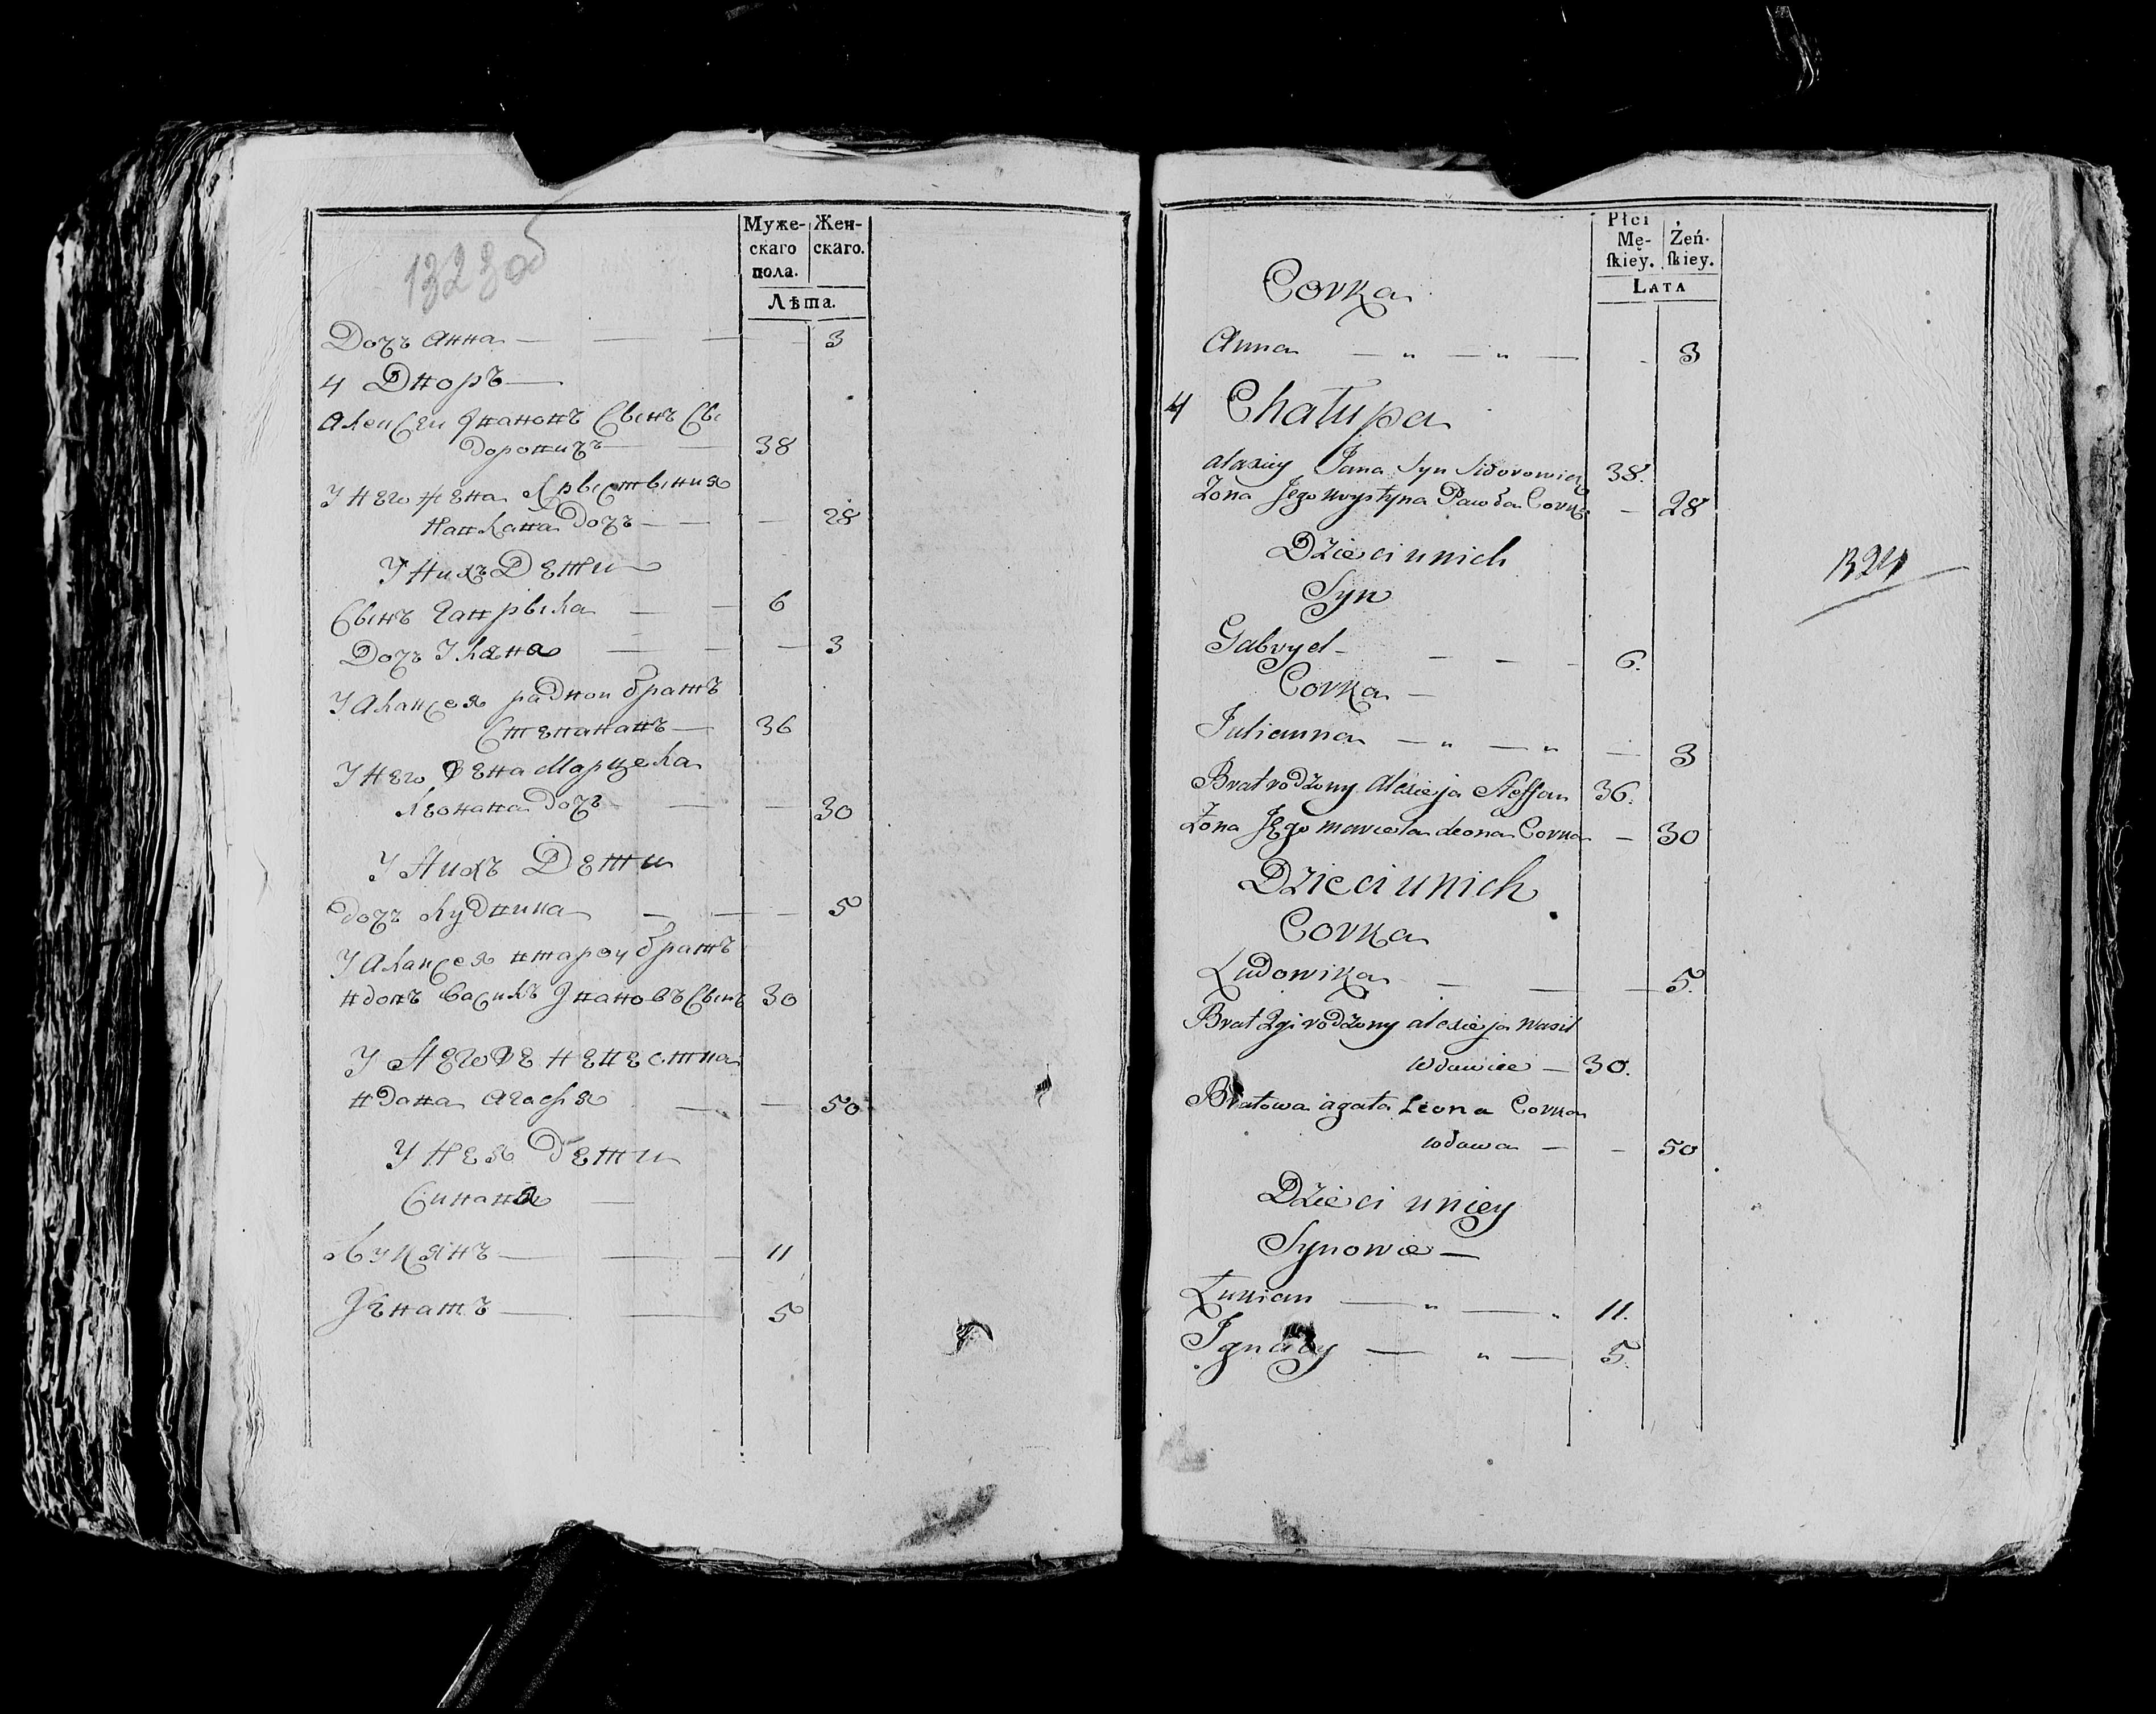 1323 об
Муже-
скаго
пола.
Жен-
скаго.
Лѣта.
Дочь Анна — — — 3
4 Дворъ —
Алексеи Ивановъ Сынъ Си
доровичъ — — 38
У Него жена Крыстыния
Павлава Дочь — — — 28
У Нихъ Дети
Сынъ Гаврыла — — 6
Дочь Уляна — — — 3
У Алаксея раднои братъ
Степананъ — 36
У Него Жена Марцеля
Леонава Дочь — — — 30
У Нихъ Дети
дочь Лудвика — — — 5
У Алаксея втароу братъ
вдовъ Василъ Ивановъ Сынъ 30
У Него же невестка
вдава Агафя — — 50
У Нея дети
Синавя —
Лукянъ — — — 11
Игнатъ — — 5
Płci
Mę-
ſkiey.
Żeń-
ſkiey.
LATA
Corka
Anna — „ — „ — 3
4 Chałupa
Alaxiey Jana Syn Sidorowicz 38.
Zona Jego Krystyna Pawła Corka — 28
Dzieci u nich
Syn
Gabryel — — — — 6.
Corka —
Julianna — „ — „ — 3
Brat rodzony Alexieja Steffan 36.
Zona Jego Marcela Leona Corka — 30
Dzieci u nich
Corka
Ludowika — — — 5.
Brat 2gi rodzony Alexieja Wasil
wdowiec — 30.
Bratowa Agata Leona Corka
wdowa — — 50
Dzieci u niey
Synowie —
Łukian — „ — „ 11.
Ignacy — „ — 5.
1324